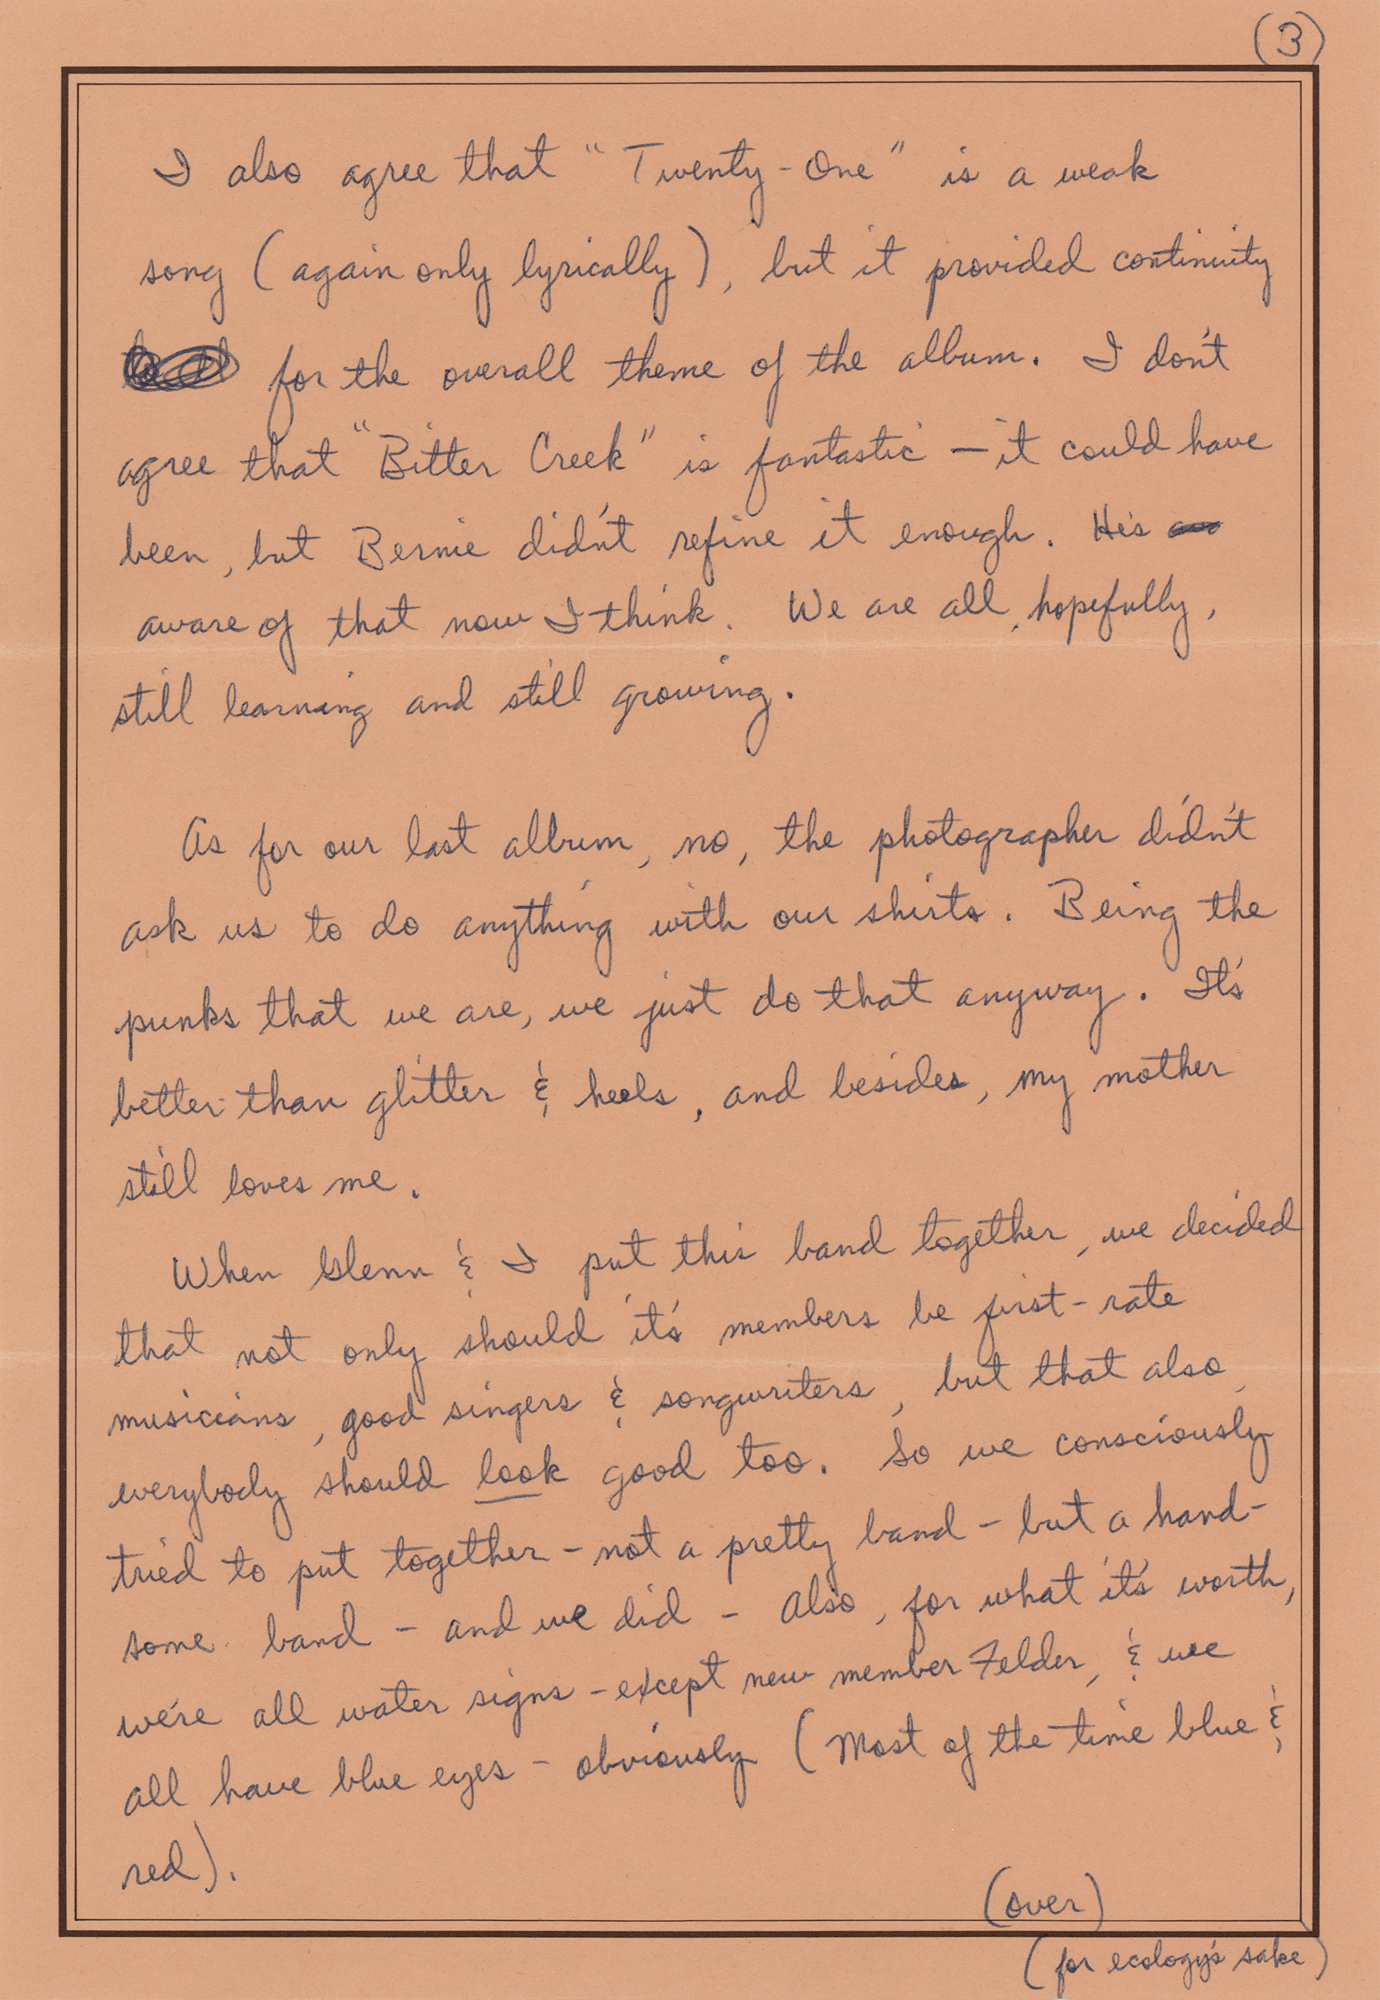 (3)
I also agree that "Twenty-One" is a weak
song (again only lyrically), but it provided continuity
for the overall theme of the album. I don't
agree that "Bitter Creek" is fantastic – it could have
been, but Bernie didn't refine it enough. He's
aware of that now I think. We are all, hopefully,
still learning and still growing.
As for our last album, no, the photographer didn't
ask us to do anything with our shirts. Being the
punks that we are, we just do that anyway. It's
better than glitter & heels, and besides, my mother
still loves me.
When Glenn & I put this band together, we decided
that not only should it's members be first-rate
musicians, good singers & songwriters, but that also,
everybody should look good too. So we consciously
tried to put together – not a pretty band – but a hand-
some band – and we did – Also, for what it's worth,
we're all water signs – except new member Felder, & we
all have blue eyes – obviously (Most of the time blue &
red).
(over)
(for ecology's sake)